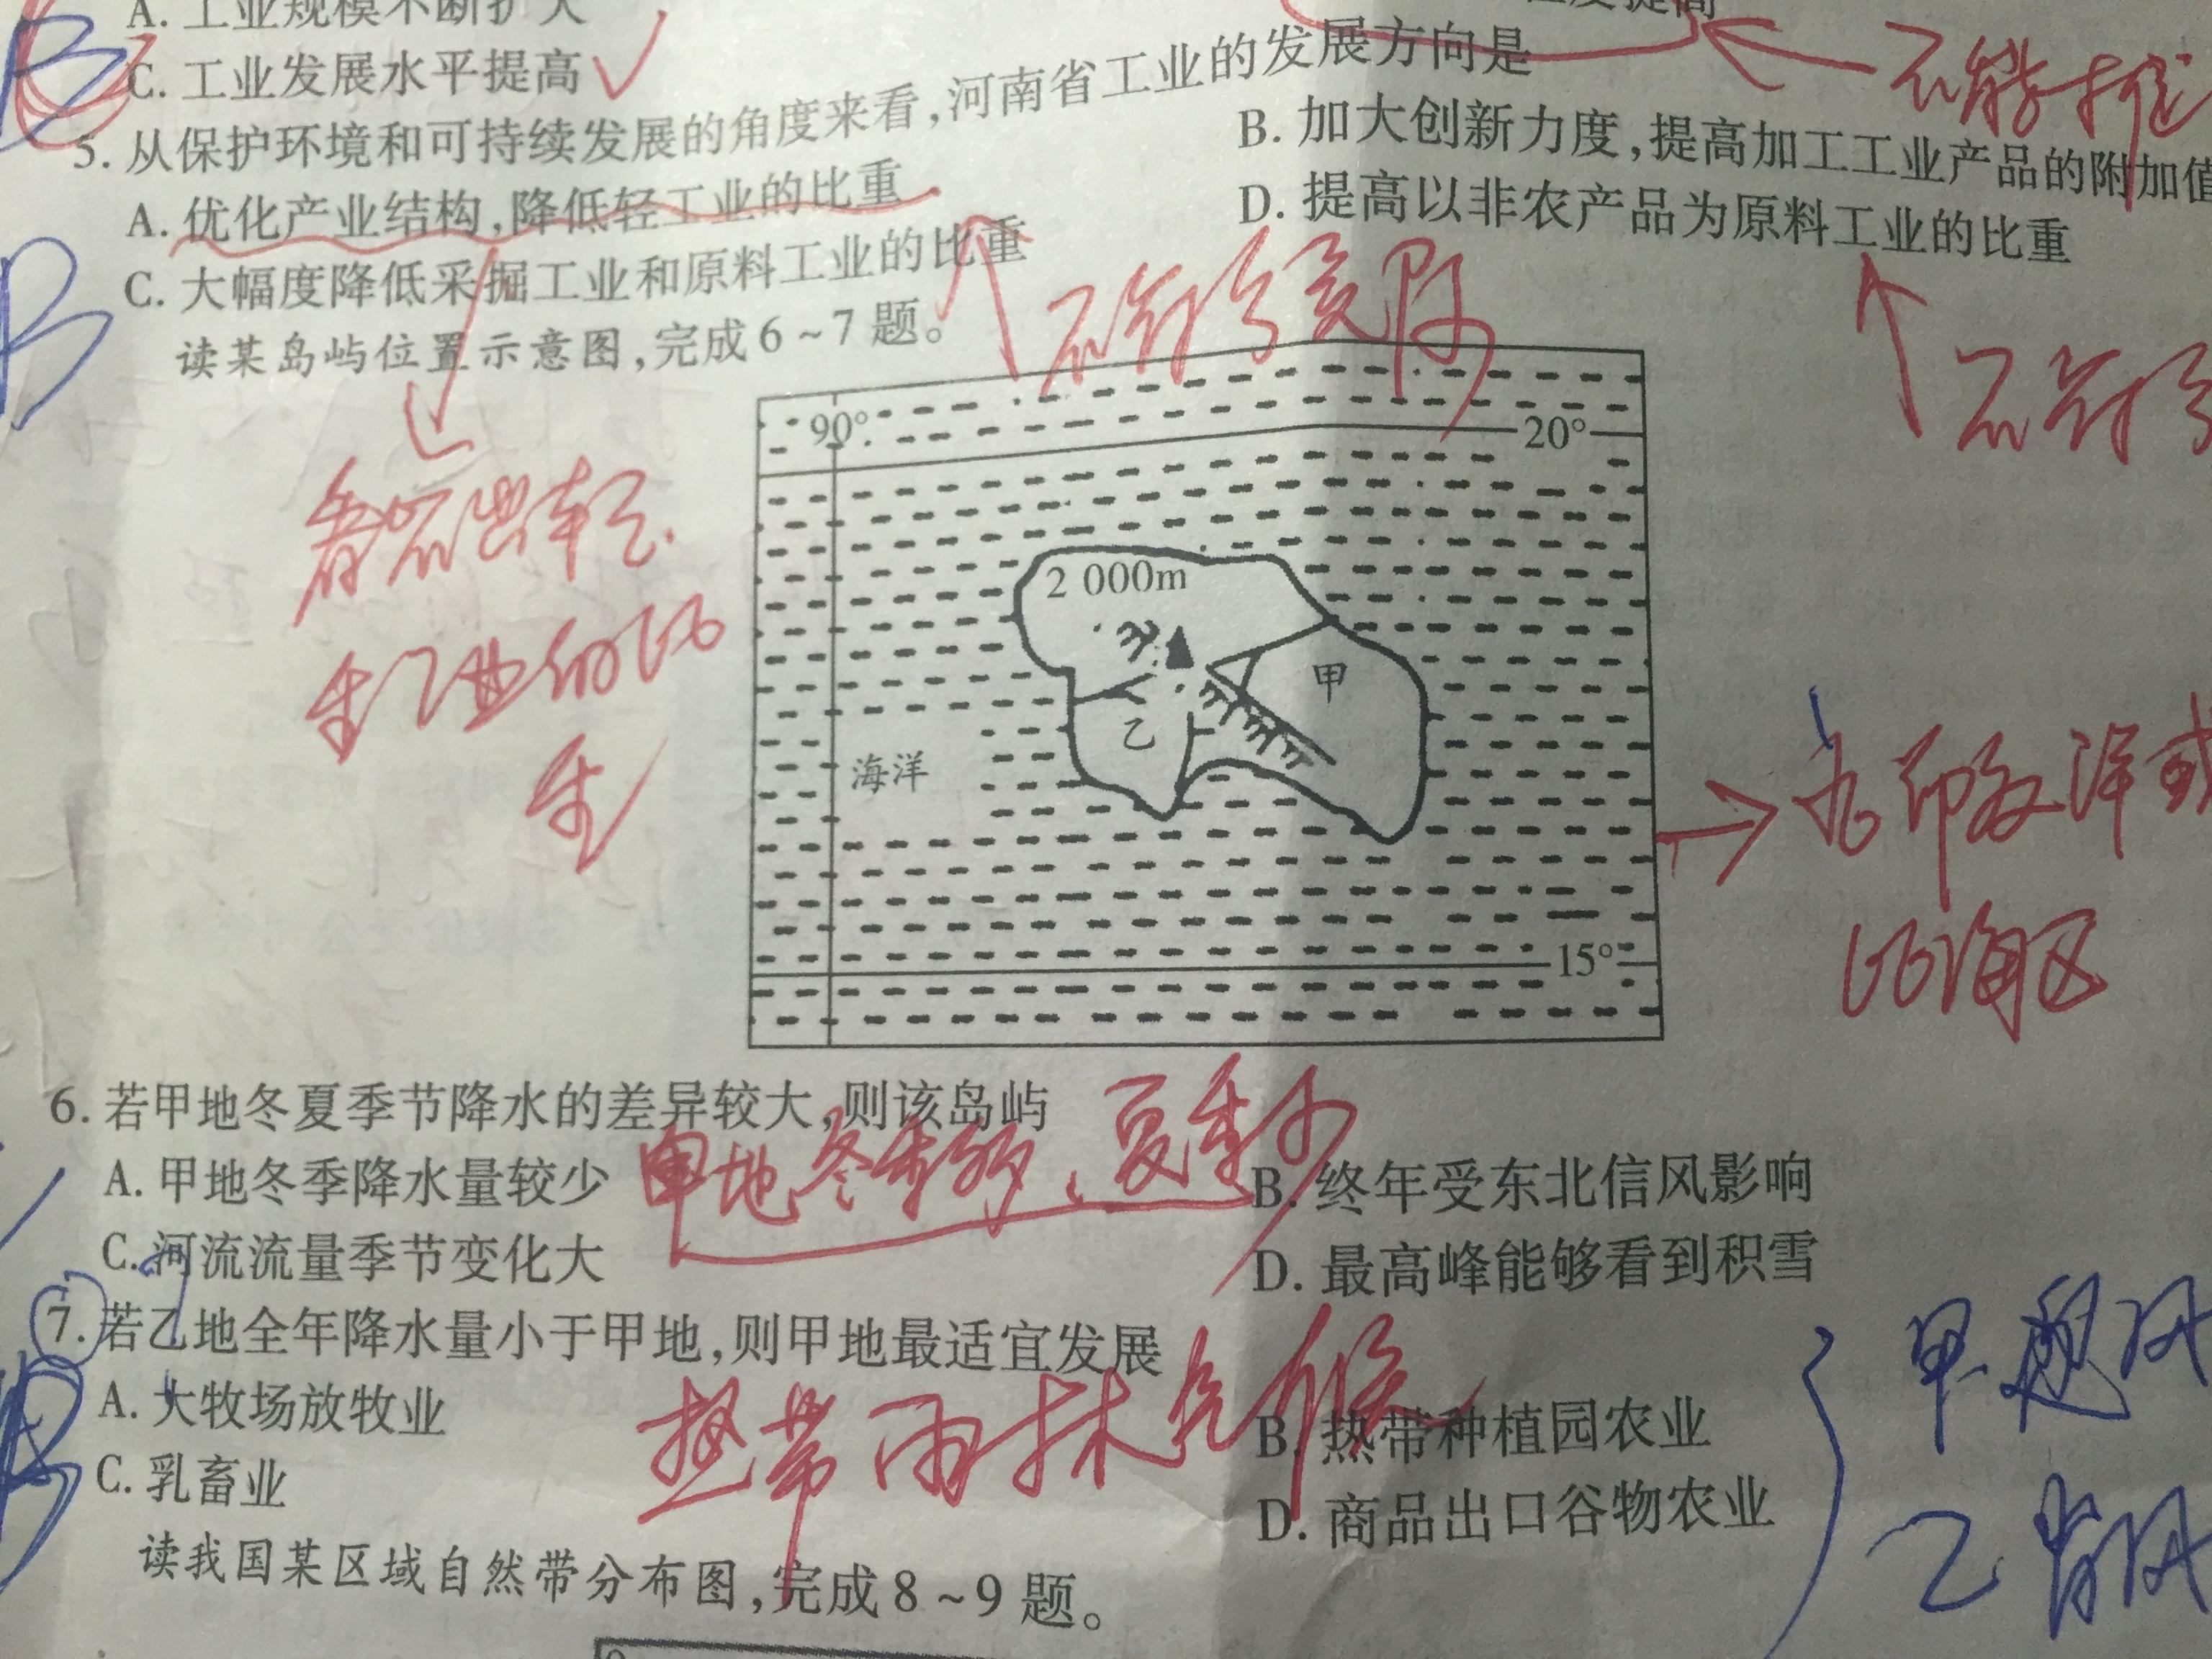 A. 工业规模不断扩大
C. 工业发展水平提高
不能推
5. 从保护环境和可持续发展的角度来看,河南省工业的发展方向是
A. 优化产业结构,降低轻工业的比重
B. 加大创新力度,提高加工工业产品的附加值
C. 大幅度降低采掘工业和原料工业的比重
D. 提高以非农产品为原料工业的比重
不符合实际
不符合
读某岛屿位置示意图,完成6~7题。
看不出轻
重工业的比
重
90°
20°
2 000m
甲
乙
海洋
15°
为印度洋或
的海区
6. 若甲地冬夏季节降水的差异较大,则该岛屿
甲地冬季多、夏季少
A. 甲地冬季降水量较少
B. 终年受东北信风影响
C. 河流流量季节变化大
D. 最高峰能够看到积雪
7. 若乙地全年降水量小于甲地,则甲地最适宜发展
热带雨林气候
A. 大牧场放牧业
B. 热带种植园农业
C. 乳畜业
D. 商品出口谷物农业
甲 迎风
乙 背风
读我国某区域自然带分布图,完成8~9题。